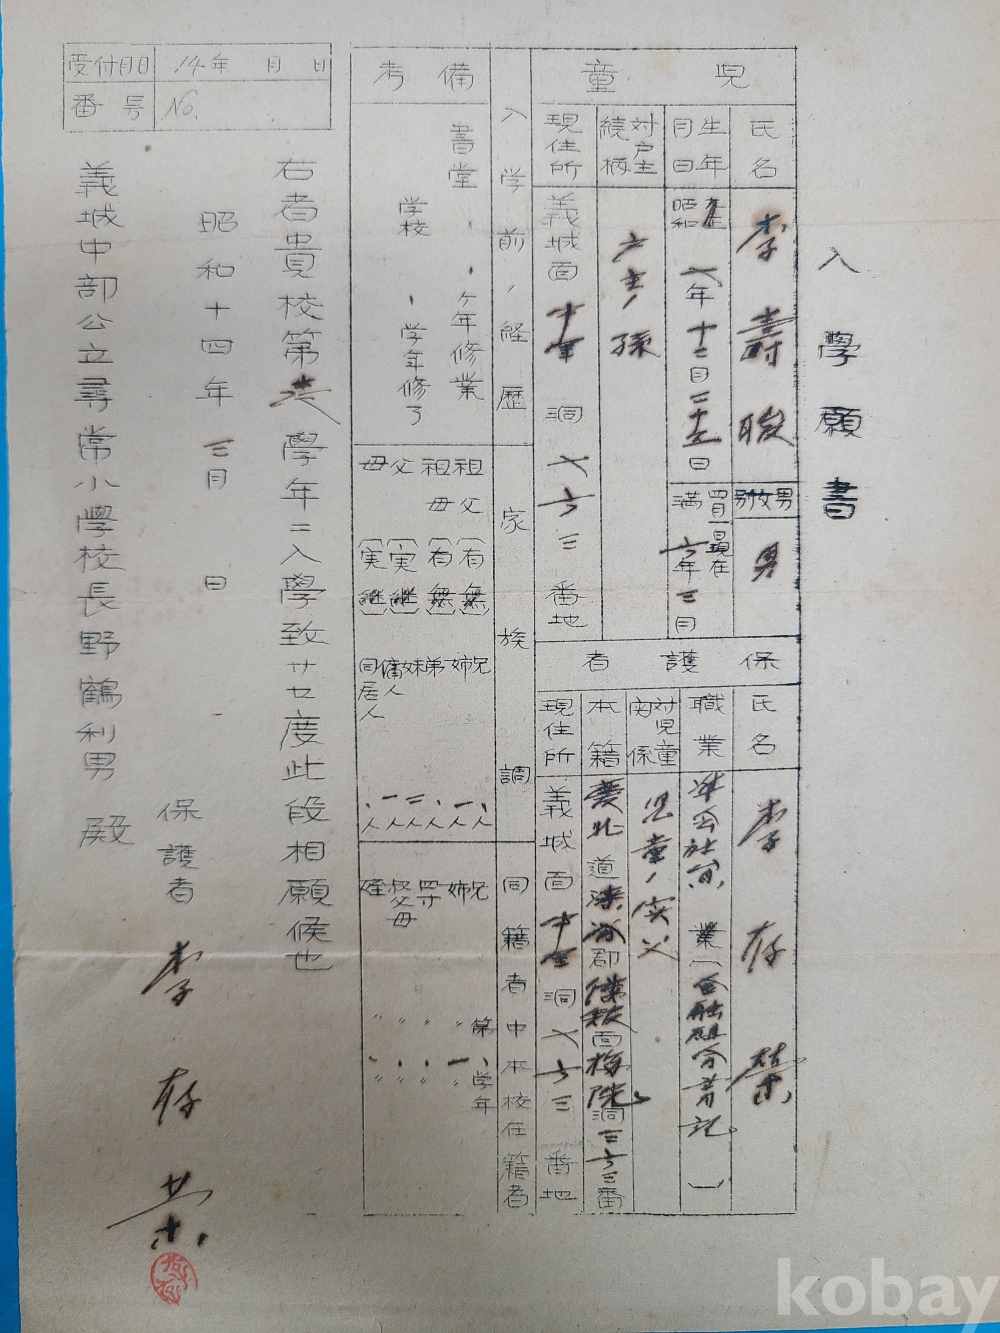 入學願書
児童
氏名
李壽
男女別
男
生年月日
昭和
年十二月二十五日
四月一日現在
満六年三月
対戸主続柄
戸主ノ孫
現住所
義城面
洞六六三番地
保護者
氏名
李存榮
職業
業(金融組合書記)
対児童関係
児童ノ実父
本籍
慶北道
郡
面
洞三六三番
現住所
義城面
洞六六三番地
入学前ノ経歴
家族調
同籍者中本校在籍者
備考
書堂、、ヶ年修業
学校、学年修了
祖父(有無)
祖母(有無)
父(実継)
母(実継)
兄
姉
弟
妹
同居人
兄
姉
叔父母
姪
第、学年
右者貴校第壱學年ニ入學致サセ度此段相願候也
昭和十四年三月 日
保護者 李存榮
義城中部公立尋常小學校長野鶴利男殿
受付月日
14年 月 日
番号
No.
kobay